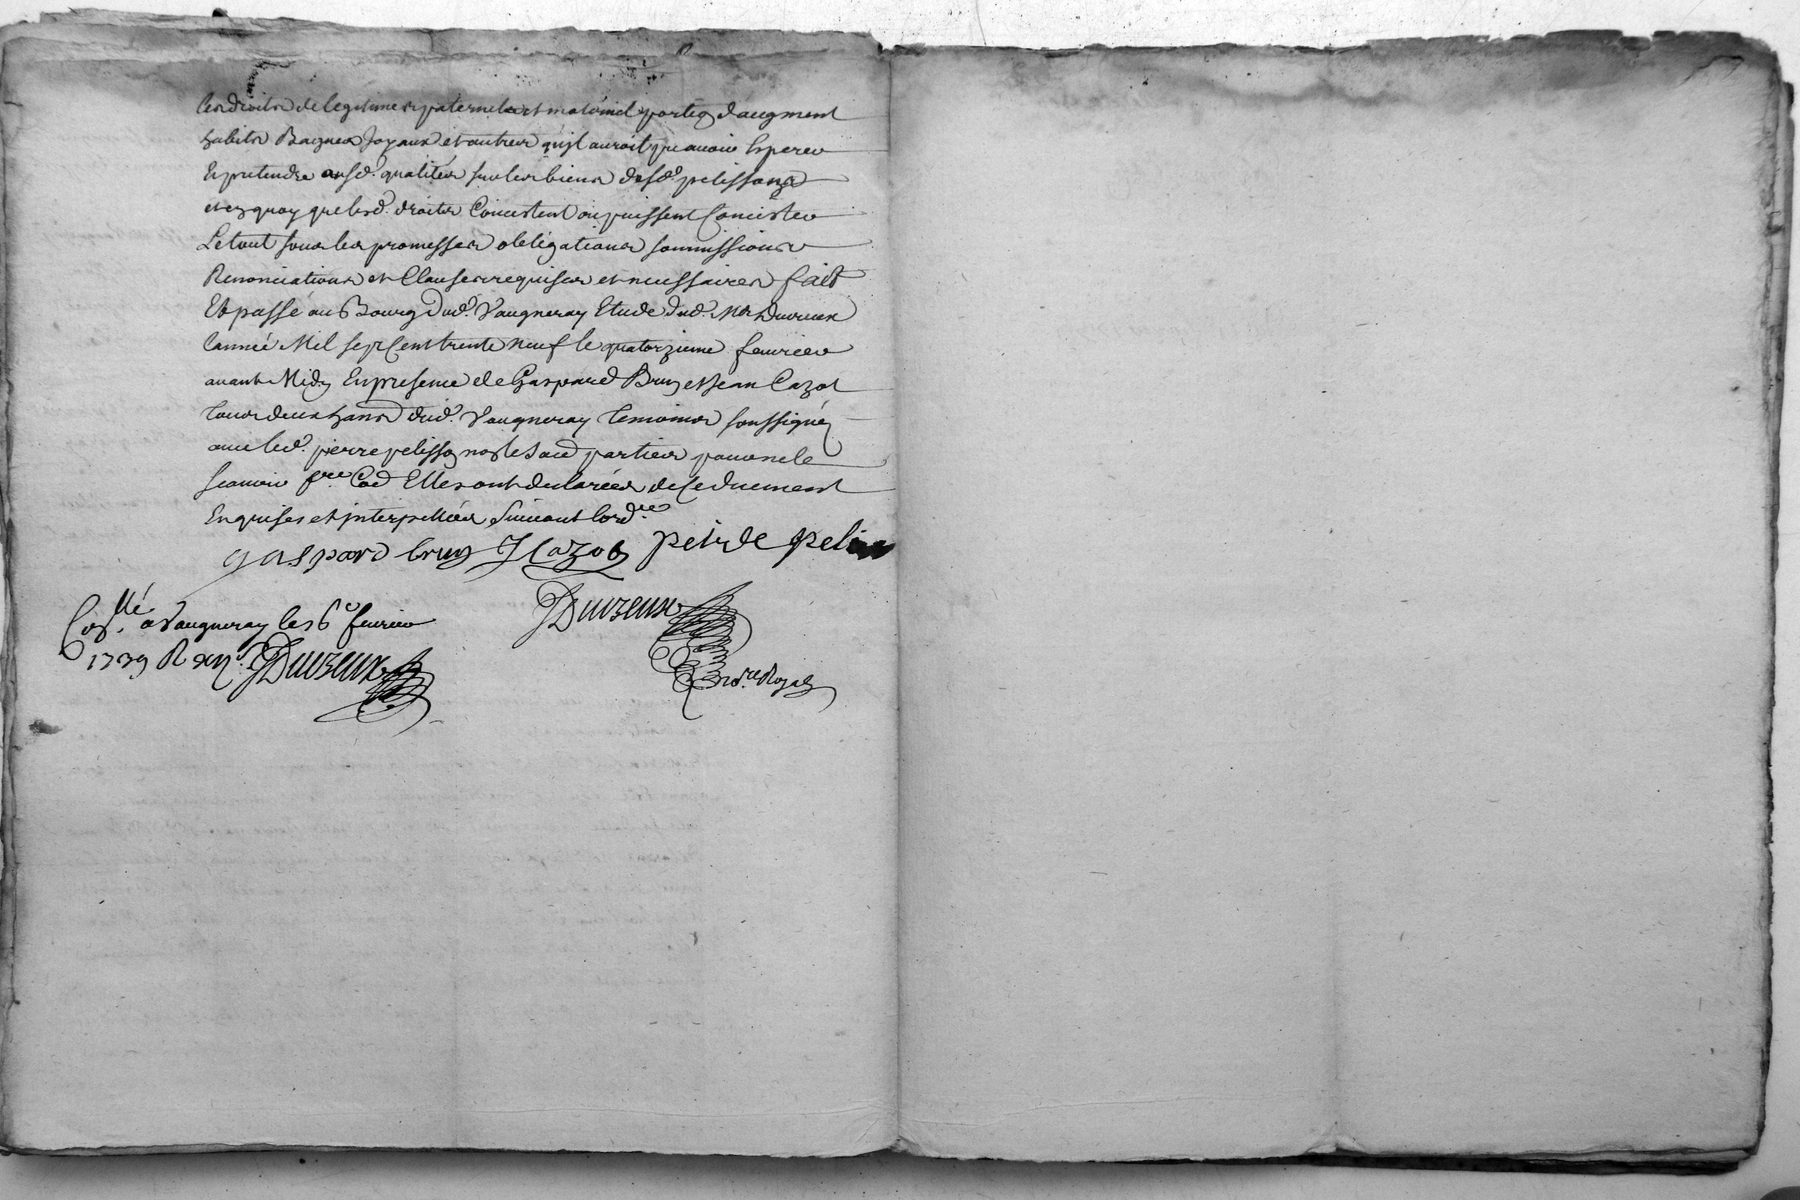 les droits de legitimes paternel et maternel portion d'augment
habits Bagues Joyaux et autres qu'jl auroit peu avoir Esperer
Et pretendre ausd. qualités sur les biens desd. pelissons
et en quoy que lesd. droits Concistent ou puissent Concister
Le tout sous les promesses obligations soumissions
Renonciations et Clauses requises et necessaires fait
Et passé au Bourg dud. Vaugneray Etude dud. Me Duvreux
l'année Mil sept Cent trente neuf le quatorzieme fevrier
avant Midy En presence de Gaspard Bruy et Jean Cazot
tous deux habts dud. Vaugneray temoins soussignés
avec led. pierre pelisson non les aud parties pour ne le
scavoir Ce Elles ont declarées de ce duement
Enquises et jnterpellées suivant lord.ce
gaspard bruy J Cazot peirde peli
JDuvreux
Con.llé a Vaugneray le 16e fevrier
1739 R JDuvreux
no.re Royal